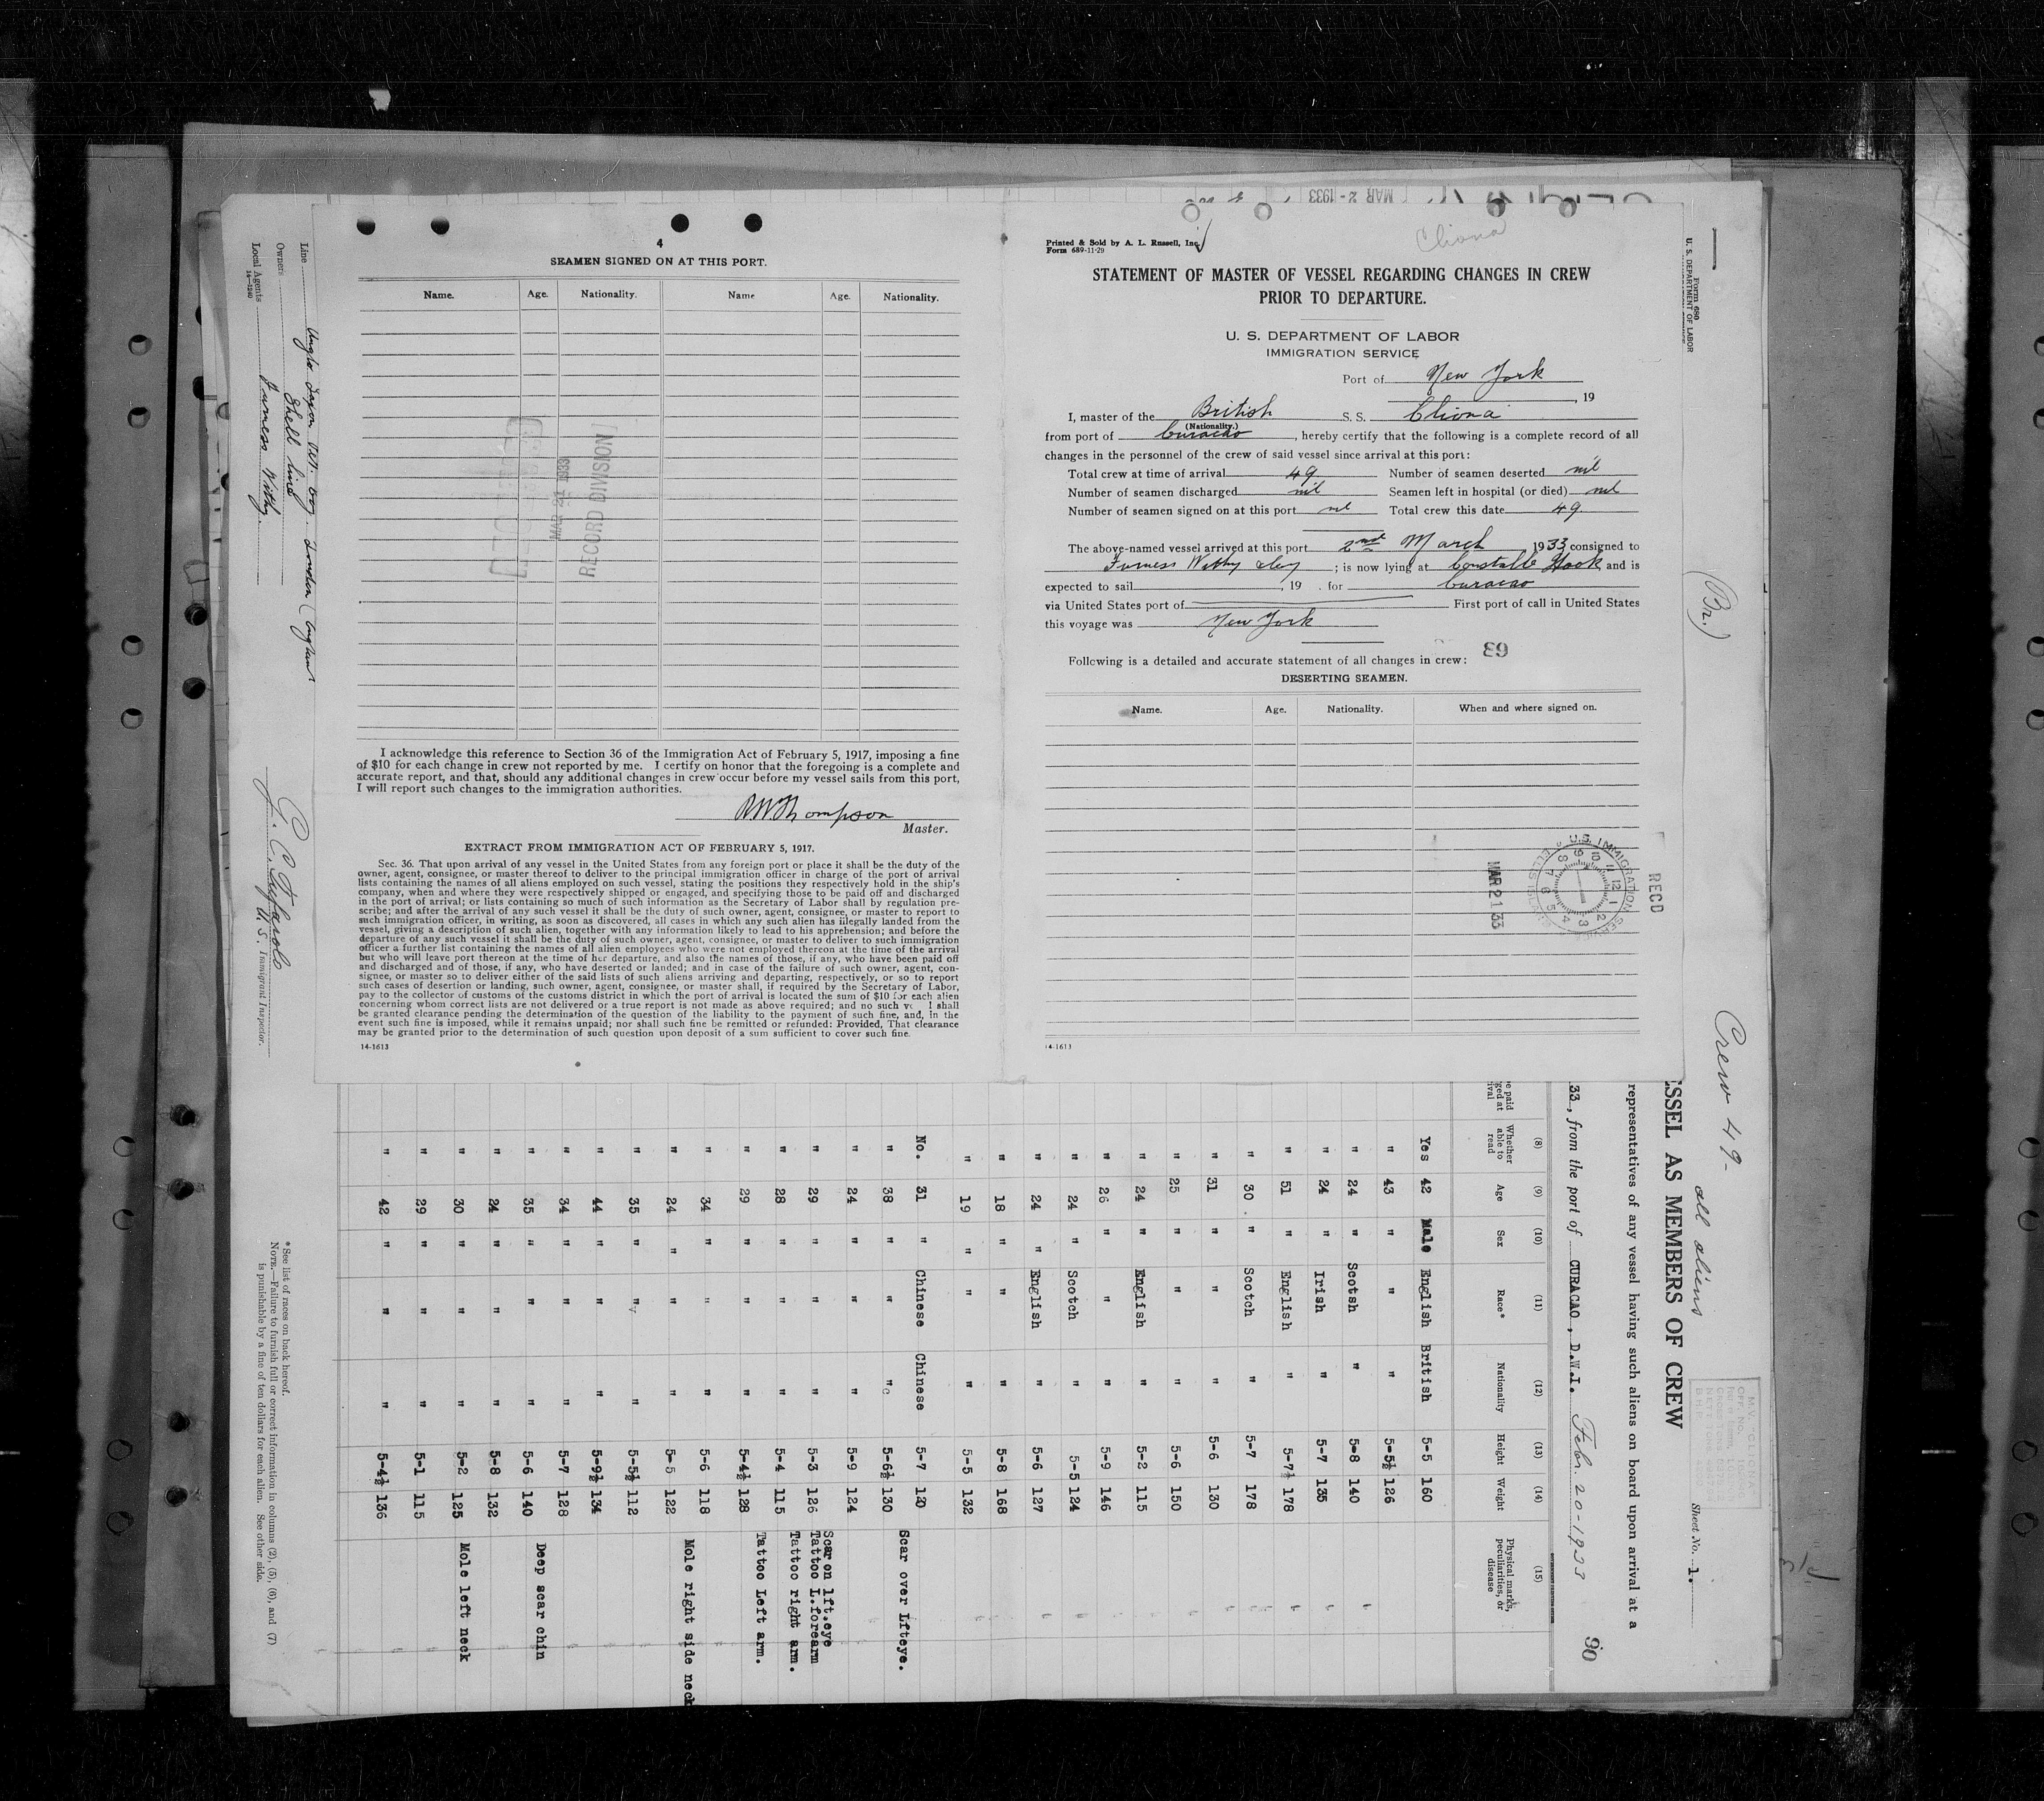 4
SEAMEN SIGNED ON AT THIS PORT.
Name. Age. Nationality. Name Age. Nationality.
MAR 21 1933
RECORD DIVISION
I acknowledge this reference to Section 36 of the Immigration Act of February 5, 1917, imposing a fine
of $10 for each change in crew not reported by me. I certify on honor that the foregoing is a complete and
accurate report, and that, should any additional changes in crew occur before my vessel sails from this port,
I will report such changes to the immigration authorities.
Thompson
Master.
EXTRACT FROM IMMIGRATION ACT OF FEBRUARY 5, 1917.
Sec. 36. That upon arrival of any vessel in the United States from any foreign port or place it shall be the duty of the
owner, agent, consignee, or master thereof to deliver to the principal immigration officer in charge of the port of arrival
lists containing the names of all aliens employed on such vessel, stating the positions they respectively hold in the ship's
company, when and where they were respectively shipped or engaged, and specifying those to be paid off and discharged
in the port of arrival; or lists containing so much of such information as the Secretary of Labor shall by regulation pre-
scribe; and after the arrival of any such vessel it shall be the duty of such owner, agent, consignee, or master to report to
such immigration officer, in writing, as soon as discovered, all cases in which any such alien has illegally landed from the
vessel, giving a description of such alien, together with any information likely to lead to his apprehension; and before the
departure of any such vessel it shall be the duty of such owner, agent, consignee, or master to deliver to such immigration
officer a further list containing the names of all alien employees who were not employed thereon at the time of the arrival
but who will leave port thereon at the time of her departure, and also the names of those, if any, who have been paid off
and discharged and of those, if any, who have deserted or landed; and in case of the failure of such owner, agent, con-
signee, or master so to deliver either of the said lists of such aliens arriving and departing, respectively, or so to report
such cases of desertion or landing, such owner, agent, consignee, or master shall, if required by the Secretary of Labor,
pay to the collector of customs of the customs district in which the port of arrival is located the sum of $10 for each alien
concerning whom correct lists are not delivered or a true report is not made as above required; and no such ve l shall
be granted clearance pending the determination of the question of the liability to the payment of such fine, and, in the
event such fine is imposed, while it remains unpaid; nor shall such fine be remitted or refunded: Provided, That clearance
may be granted prior to the determination of such question upon deposit of a sum sufficient to cover such fine.
14-1613
Printed & Sold by A. L. Russell, Inc.
Form 689-11-29
Cliona
MAR 2 - 1933
STATEMENT OF MASTER OF VESSEL REGARDING CHANGES IN CREW
PRIOR TO DEPARTURE.
U. S. DEPARTMENT OF LABOR
IMMIGRATION SERVICE
Port of New York
, 19
I, master of the British S. S. Cliona
(Nationality.)
from port of Curacao, hereby certify that the following is a complete record of all
changes in the personnel of the crew of said vessel since arrival at this port:
Total crew at time of arrival 49 Number of seamen deserted nil
Number of seamen discharged nil Seamen left in hospital (or died) nil
Number of seamen signed on at this port nil Total crew this date 49.
The above-named vessel arrived at this port 2nd March 1933 consigned to
Furness Withy & Coy; is now lying at Constable Hook, and is
expected to sail , 19 . for Curacao
via United States port of First port of call in United States
this voyage was New York
69
Following is a detailed and accurate statement of all changes in crew:
DESERTING SEAMEN.
Name. Age. Nationality. When and where signed on.
RECD
U.S. IMMIGRATION SERVICE
MAR 21 33
14-1613
Form 680
U. S. DEPARTMENT OF LABOR
(Br.)
Crew 49-
all aliens
Sheet No. 1.
ESSEL AS MEMBERS OF CREW
representatives of any vessel having such aliens on board upon arrival at a
33, from the port of CURACAO, D.W.I. Feb. 20-1933
90
(8) (9) (10) (11) (12) (13) (14) (15)
Whether able to read Age Sex Race* Nationality Height Weight Physical marks, peculiarities, or disease
Yes 42 Male English British 5-5 160
" 43 " " " 5-5½ 126
" 24 " Scotsh " 5-8 140
" 24 " Irish " 5-7 135
" 51 " English " 5-7½ 178
" 30. " Scotch " 5-7 178
" 31 " " " 5-6 130
" 25 " " " 5-6 150
" 24 " English " 5-2 115
" 26 " " " 5-9 146
" 24 " Scotch " 5-5 124
" 24 " English " 5-6 127
" 18 " " " 5-8 168
" 19 " " " 5-5 132
No. 31 " Chinese Chinese 5-7 120
" 38 " " " 5-6½ 130 Scar over Lfteye.
" 24 " " " 5-9 124
" 29 " " " 5-3 126 Scar on lft.eye Tattoo L.forearm
" 28 " " " 5-4 115 Tattoo right arm.
" 29 " " " 5-4½ 128 Tattoo Left arm.
" 34 " " " 5-6 118
" 24 " " " 5-5 122 Mole right side neck
" 35 " " " 5-5½ 112
" 44 " " " 5-9½ 134
" 34 " " " 5-7 128
" 35 " " " 5-6 140 Deep scar chin
" 24 " " " 5-8 132
" 30 " " " 5-2 125 Mole left neck
" 29 " " " 5-1 115
" 42 " " " 5-4½ 136
Line Anglo Saxon Pet. Coy. London (England
Owners Shell Line
Local Agents Furness Withy.
14-1240
U. S. Immigrant Inspector.
* See list of races on back hereof.
NOTE.—Failure to furnish full or correct information in columns (2), (5), (6), and (7)
is punishable by a fine of ten dollars for each alien. See other side.